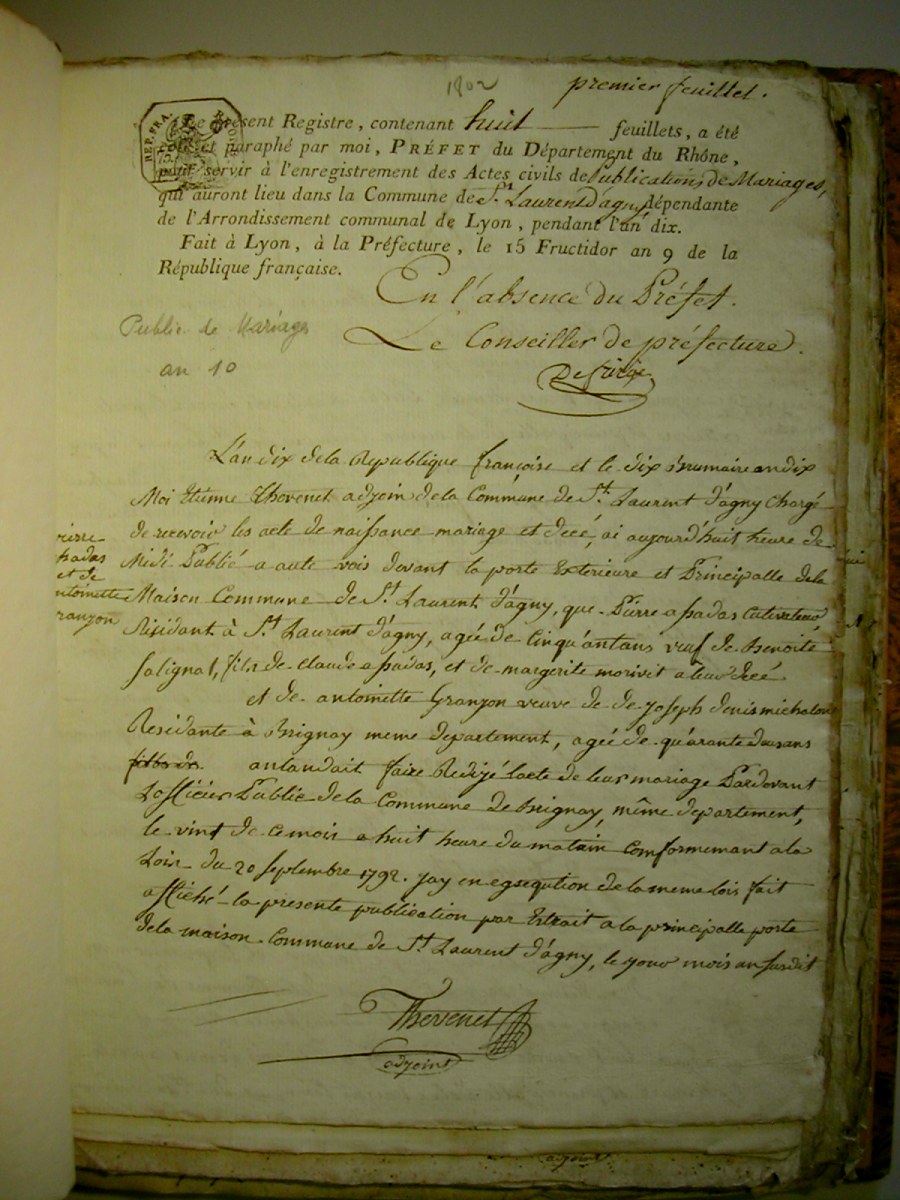 1802
premier feuillet.
REP. FRA.
Le présent Registre, contenant huit feuillets, a été
et paraphé par moi, PRÉFET du Département du Rhône,
pour servir à l'enregistrement des Actes civils de Publications de Mariages,
qui auront lieu dans la Commune de St. Laurent d'agny dépendante
de l'Arrondissement communal de Lyon, pendant l'an dix.
Fait à Lyon, à la Préfecture, le 15 Fructidor an 9 de la
République française.
En l'absence du Préfet.
Le Conseiller de préfecture.
Public. de Mariages
an 10
L'an dix de la Republique françoise et le dix brumaire an dix
Moi Etienne Thevenet adjoin de la Commune de St. Laurent d'agny Chargé
de recevoir les acte de naissance mariage et decé, ai aujourd'huit heure de
Midi Publié a aute vois devant la porte Exterieure et Principalle de la
Maison Commune de St. Laurent d'agny, que Pierre apadas Cultivateur
Residant à St. Laurent d'agny, agée de Cinquantans veuf de Benoite
Salignat, fils de Claude apadas, et de margerite morivit a leur decé
et de antoinette Granjon veuve de de joseph denis michalon
Residante à Brignay meme departement, agée de quarante deusans
antandait faire Redigé lacte de leur mariage Pardevant
Lofficier Public de la Commune de Brignay, même departement,
le vint de ce mois a huit heure du matain Comformemant a la
Lois du 20 septembre 1792. jay en egseqution de la meme lois fait
affiché la presente publication par Extrait a la principalle porte
de la maison Commune de St. Laurent d'agny, le jour mois an susdit
hadas
et de
ntoinette
ranjon
Thevenet
adjoint